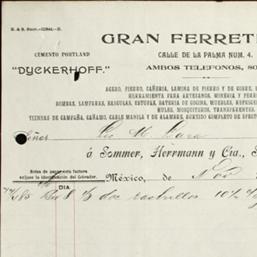 GRAN FERRETE
CEMENTO PORTLAND
"DYCKERHOFF."
CALLE DE LA PALMA NUM. 4.
AMBOS TELEFONOS, 80
ACERO, FIERRO, CAÑERIA, LAMINA DE FIERRO Y DE
HERRAMIENTA PARA ARTESANOS, MINERIA Y FERRO
BOMBAS, LAMPARAS, BASCULAS, ESTUFAS, BATERIA DE COCINA, MUEBLES, REFRIGE
HULES, MOSQUITEROS, TRANSPARENTES,
TIENDAS DE CAMPAÑA, CAÑAMO, CABLE MANILA Y DE ALAMBRE, SURTIDO COMPLETO DE EFECTO
Señor
á Sommer, Herrmann y Cía., S
Antes de pagar esta factura
exíjase la identificación del Cobrador.
México, de Nov
DIA
8 dos rastrillos 10%